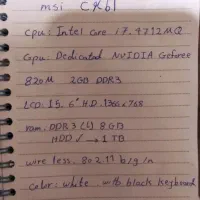 msi CX61
cpu: Intel Core i7.4712MQ
Gpu: Dedicated NVIDIA Geforce
820M 2GB DDR3
LCD: 15.6" HD.1366x768
ram: DDR3 (L) 8GB
HDD ✓ → 1 TB
wireless. 802.11 b/g/n
color: white with black keyboard